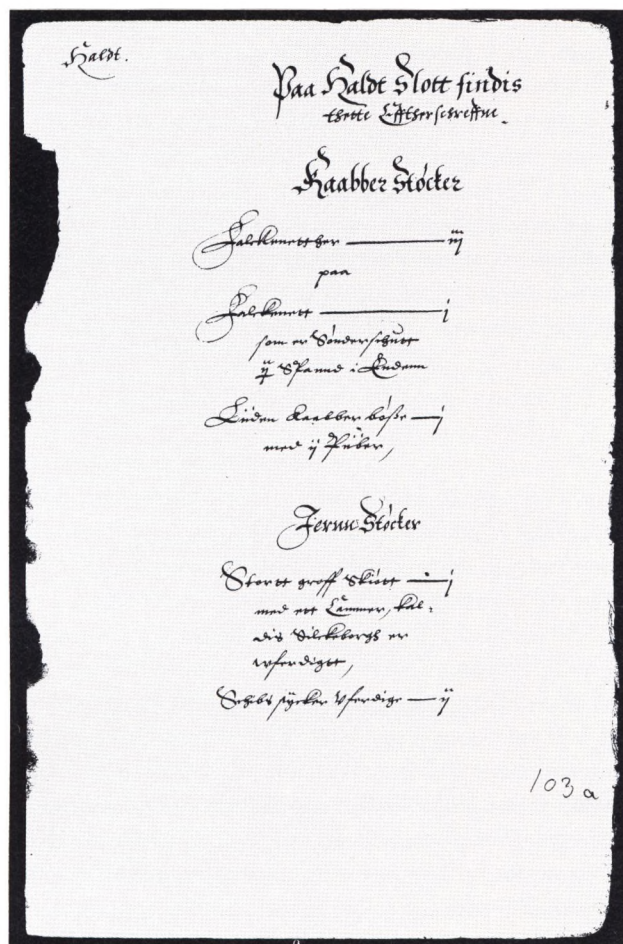 Haldt.
Paa Haldt Slott findis
thette Efftherschreffne
Kaabber Stöcker
Falckenetther — iij
paa
Falckenett — j
som er Sönderschutt
ij Spannd i Endenn
Liiden Kaabber bösse — j
med ij Piiber,
Jernn Stöcker
Stortt groff Skiött — j
med ett Cammer, kal-
dis Silckeborgh er
wferdigtt,
Schibs stycker Vferdige — ij
103 a